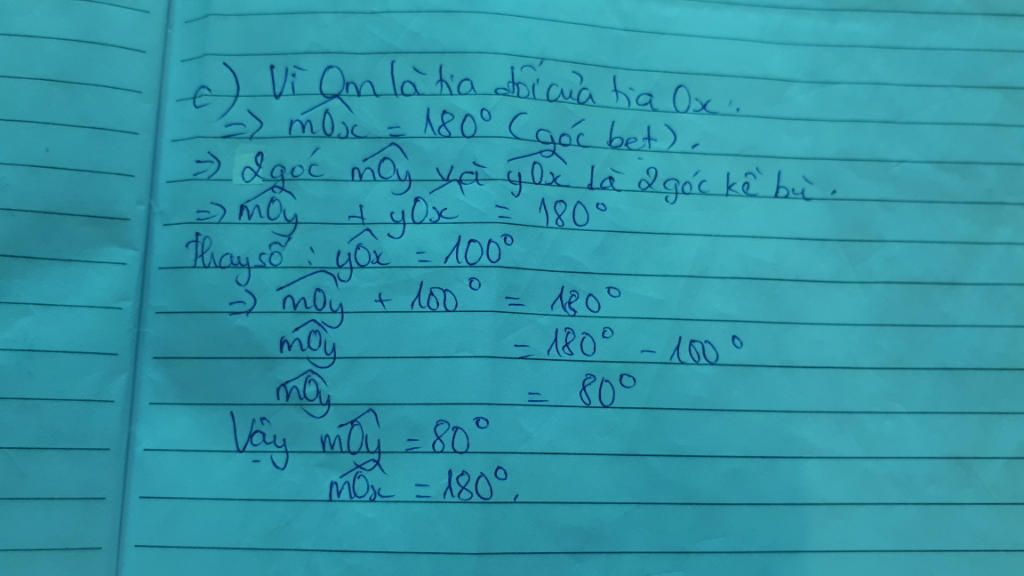 c) Vì Om là tia đối của tia Ox.
=> mOx = 180° (góc bẹt).
=> 2góc mOy và yOx là 2góc kề bù.
=> mOy + yOx = 180°
Thay số : yOx = 100°
=> mOy + 100° = 180°
mOy = 180° - 100°
mOy = 80°
Vậy mOy = 80°
mOx = 180°.